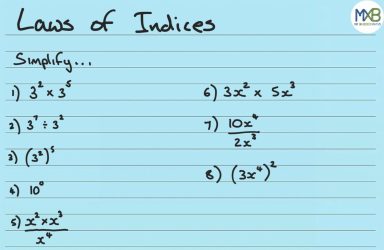 Laws of Indices
MXB
Simplify...
1) 3² × 3⁵
2) 3⁷ ÷ 3²
3) (3²)⁵
4) 10⁰
5) x² × x³
x⁴
6) 3x² × 5x³
7) 10x⁴
2x³
8) (3x⁴)²